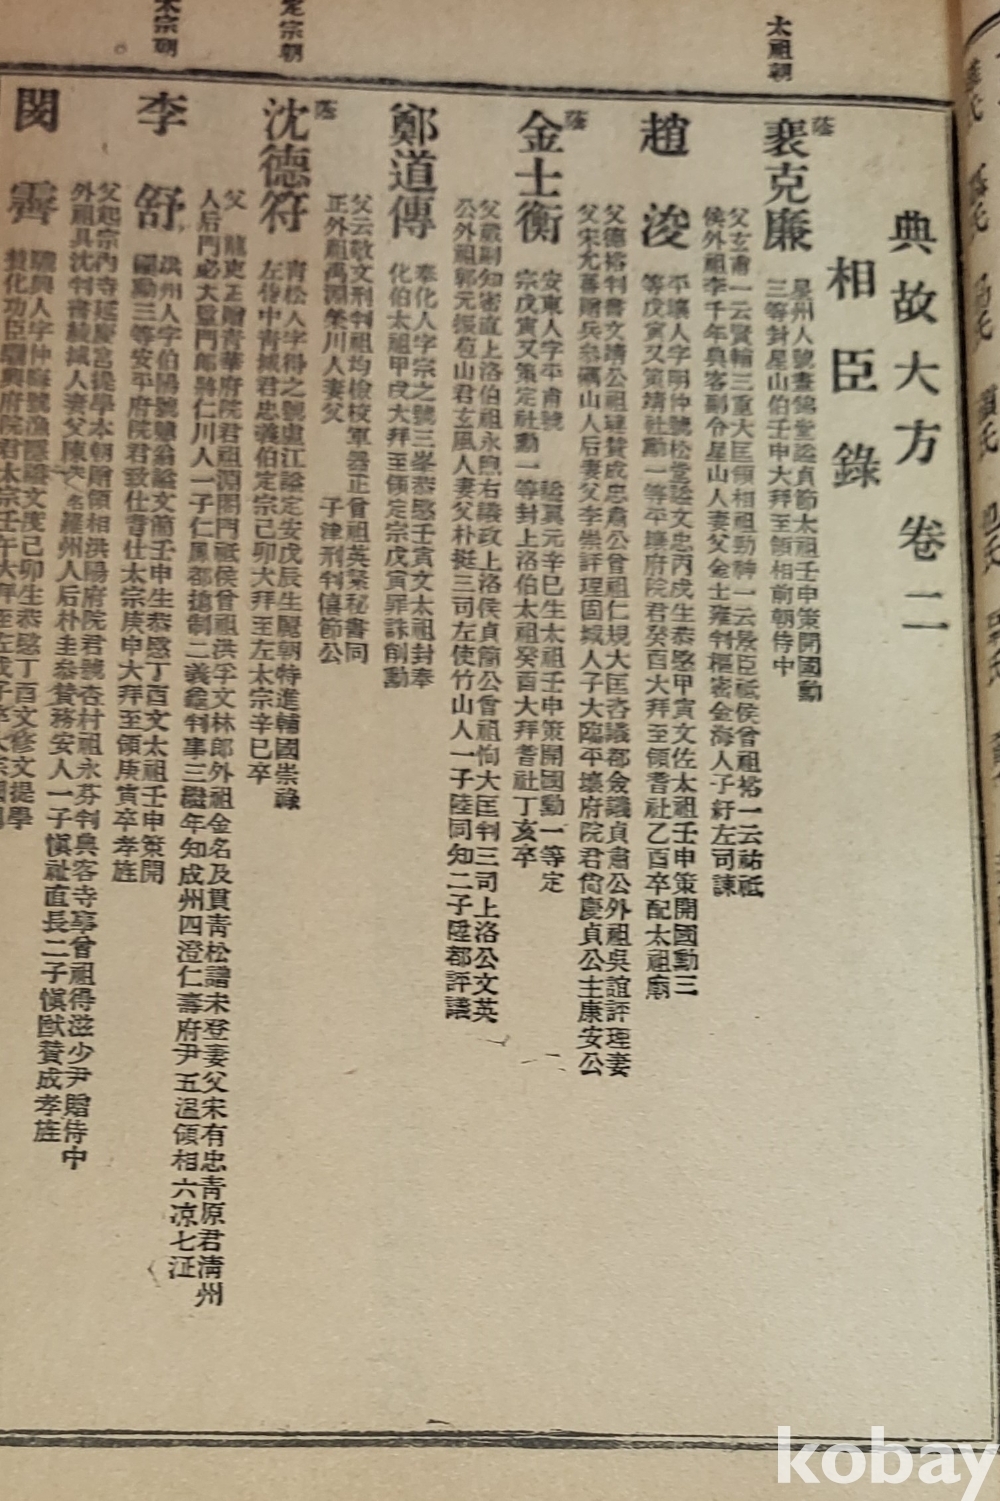 太祖朝
定宗朝
太宗朝
典故大方 卷二
相臣錄
蔭
裵克廉
星州人號畫錦堂諡貞節太祖壬申策開國勳
三等封星山伯壬申大拜至領相前朝侍中
父玄甫一云賢輔三重大匡領相祖勁神一云景臣祗侯曾祖裕一云祐祗
侯外祖李千年典客副令星山人妻父金士雍判樞密金海人子紆左司諫
趙浚
平壤人字明仲號松堂諡文忠丙戌生恭愍甲寅文佐太祖壬申策開國勳三
等戊寅又策靖社勳一等平壤府院君癸酉大拜至領耆社乙酉卒配太祖廟
父德裕判書文靖公祖璉贊成忠肅公曾祖仁規大匡吝議都僉議貞肅公外祖吳誼評理妻
父宋允蕃贈兵參礪山人后妻父李崇評理固城人子大臨平壤府院君尙慶貞公主康安公
蔭
金士衡
安東人字平甫號 諡翼元辛巳生太祖壬申策開國勳一等定
宗戊寅又策定社勳一等封上洛伯太祖癸酉大拜耆社丁亥卒
父蕆嗣知密直上洛伯祖永煦右議政上洛侯貞簡公曾祖恂大匡判三司上洛公文英
公外祖郭元振苞山君玄風人妻父朴挺三司左使竹山人一子陸同知二子陞都評議
鄭道傳
奉化人字宗之號三峯恭愍壬寅文太祖封奉
化伯太祖甲戌大拜至領定宗戊寅罪誅削勳
父云敬文刑判祖均檢校軍器正曾祖英粲秘書同
正外祖禹淵榮川人妻父 子津刑判僖節公
蔭
沈德符
靑松人字得之號盧江諡定安戊辰生麗朝特進輔國崇祿
左侍中靑城君忠義伯定宗己卯大拜至左太宗辛巳卒
父龍吏正贈靑華府院君祖淵閤門祗侯曾祖洪孚文林郎外祖金名及貫靑松譜未登妻父宋有忠靑原君淸州
人后門必大監門郎將仁川人一子仁鳳都摠制二義龜判事三繼年知成州四澄仁壽府尹五溫領相六凉七泟
李舒
洪州人字伯陽號戇翁諡文簡壬申生恭愍丁酉文太祖壬申策開
國勳三等安平府院君致仕耆社太宗庚申大拜至領庚寅卒孝旌
父起宗內寺延慶宮提學本朝贈領相洪陽府院君號杏村祖永芬判典客寺事曾祖得滋少尹贈侍中
外祖具沈判書綾城人妻父陳 名羅州人后朴圭參贊務安人一子愼祉直長二子愼猷贊成孝旌
閔霽
驪興人字仲晦號漁隱諡文度己卯生恭愍丁酉文修文提學